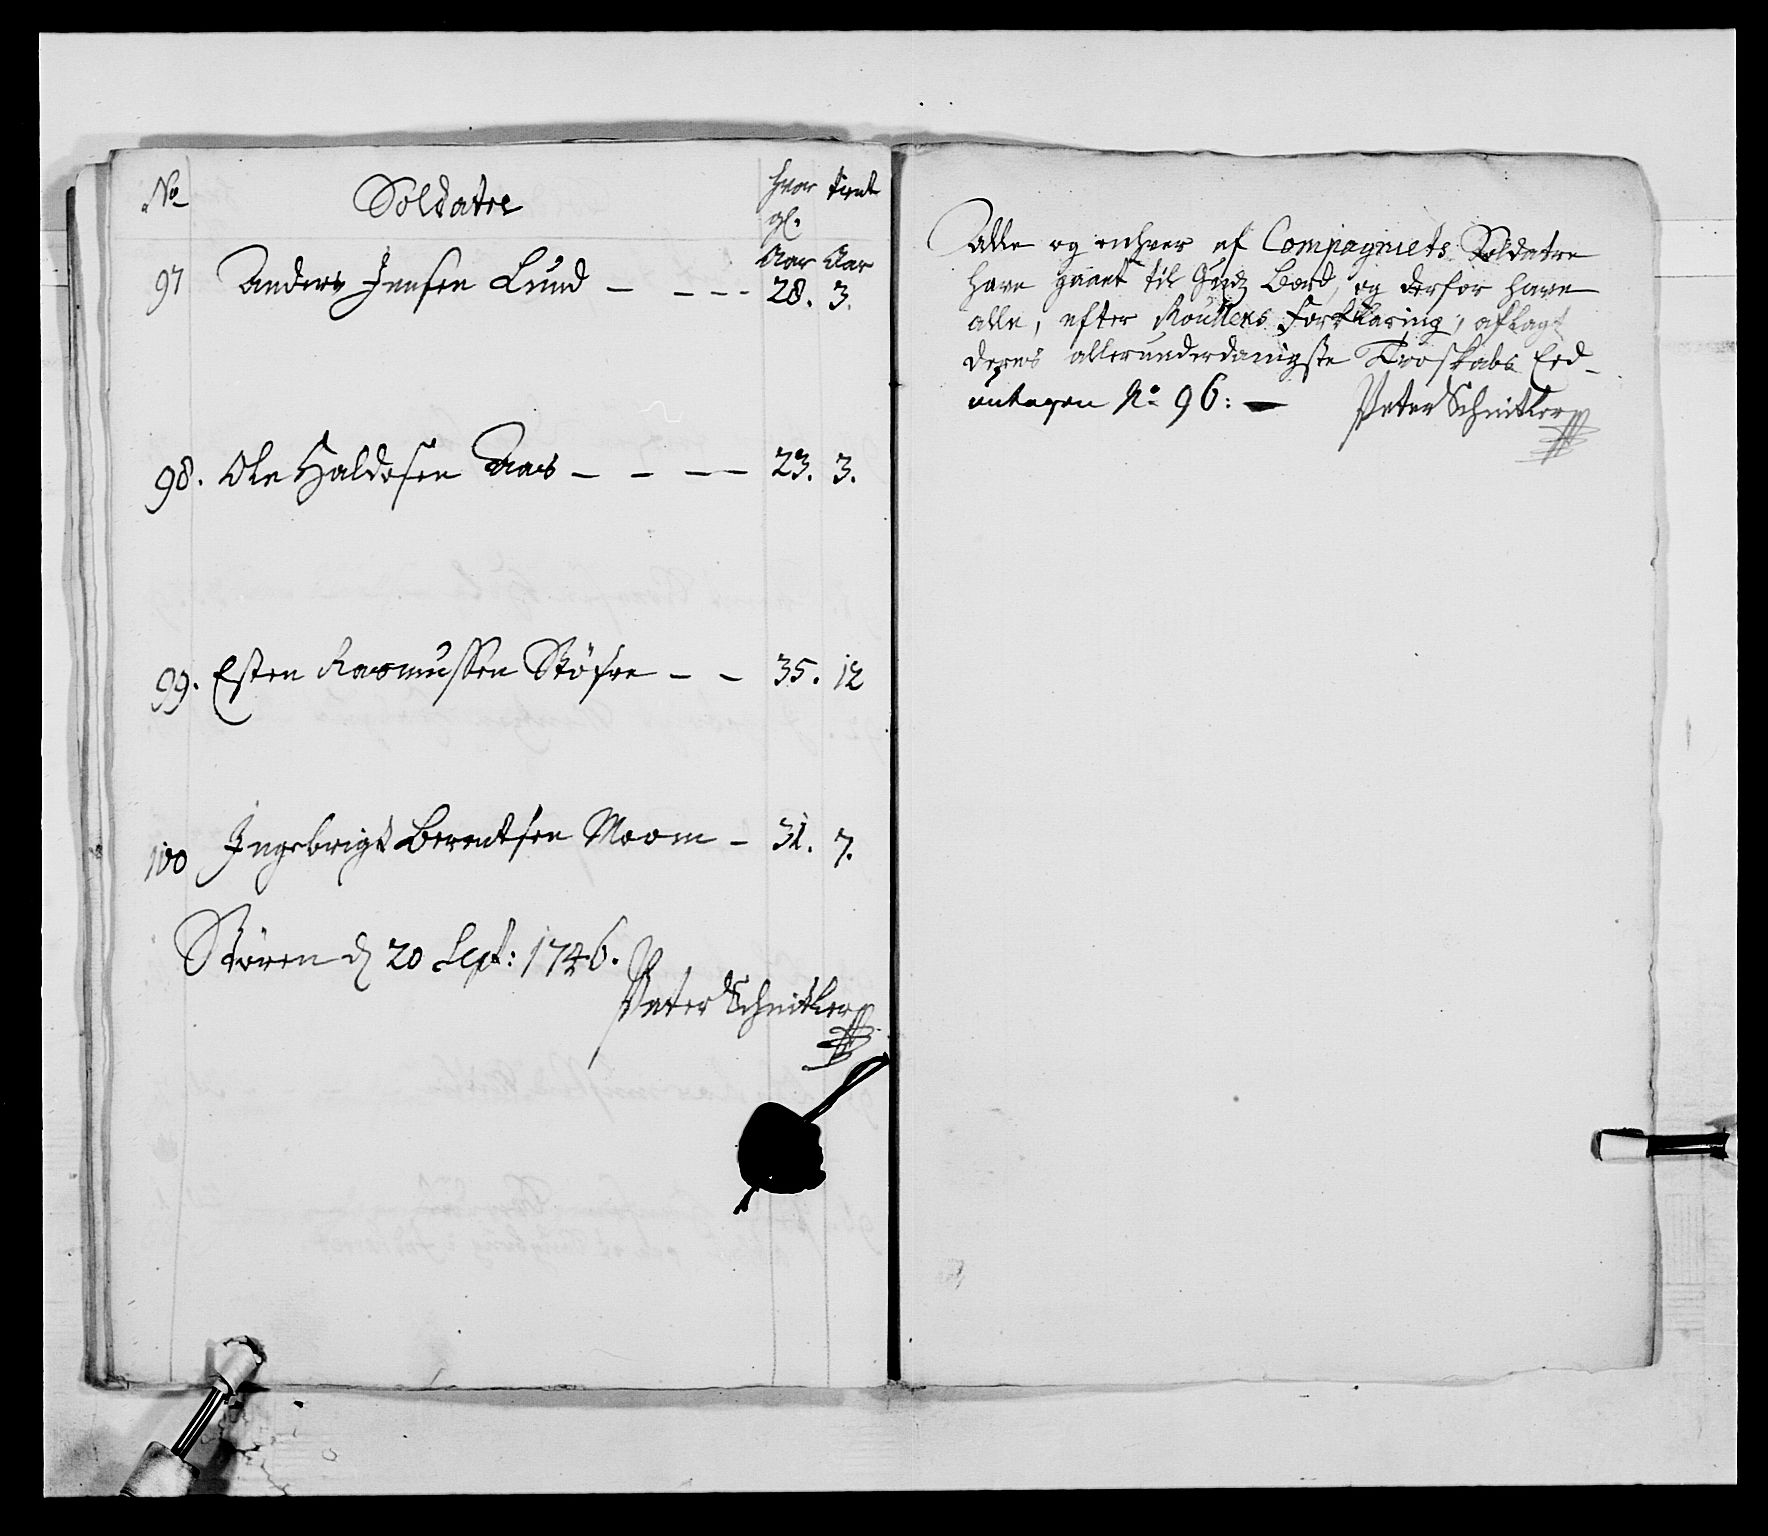 No
Soldatre
hvor tient
gl.
Aar Aar
97 Anders Jensen Lund — — — — 28. 3.
98. Ole Haldosen Aas — — — — 23. 3.
99. Esten Rasmussen Støfre — — 35. 12
100 Ingebrigt Berentsen Moom — 31. 7.
Støren d 20 Sept: 1746.
Peter Schnitler
Alle og enhver af Compagniets Soldatre
have gaaet til Gudz Bord, og derfor have
alle, efter Roullens Forklaring, aflagt
deres allerunderdanigste Troskabs Eed
undtagen No 96: —
Peter Schnitler